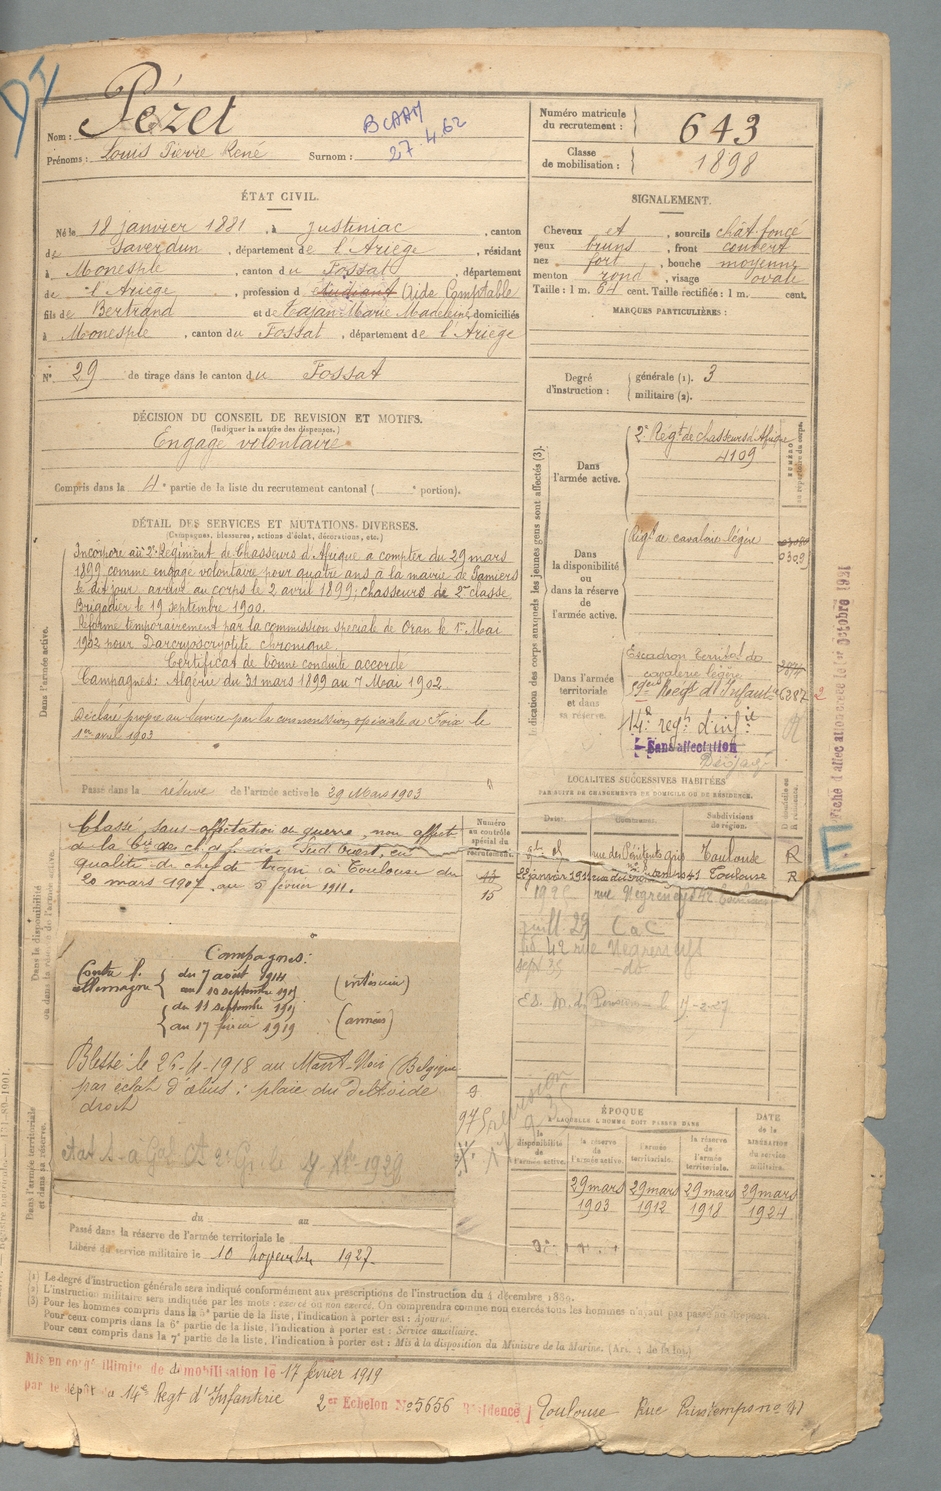 Nom : Pézet
Prénoms : Louis Pierre René Surnom :
BCAAM
27.4.62
Numéro matricule du recrutement : 643
Classe de mobilisation : 1898
ÉTAT CIVIL.
Né le 18 janvier 1881, à Justiniac, canton
de Saverdun, département de l'Ariège, résidant
à Monesple, canton du Fossat, département
de l'Ariège, profession d'étudiant Aide Comptable
fils de Bertrand et de Cajan Marie Madeleine, domiciliés
à Monesple, canton du Fossat, département de l'Ariège
N° 29 de tirage dans le canton du Fossat
SIGNALEMENT.
Cheveux et, sourcils chât foncé
yeux bruns, front couvert
nez fort, bouche moyenne
menton rond, visage ovale
Taille : 1 m. 64 cent. Taille rectifiée : 1 m. cent.
MARQUES PARTICULIÈRES :
Degré d'instruction : générale (1). 3
militaire (2).
DÉCISION DU CONSEIL DE REVISION ET MOTIFS.
(Indiquer la nature des dispenses.)
Engagé volontaire
Compris dans la 4e partie de la liste du recrutement cantonal ( e portion).
DÉTAIL DES SERVICES ET MUTATIONS DIVERSES.
(Campagnes, blessures, actions d'éclat, décorations, etc.)
Dans l'armée active.
Incorporé au 2e Régiment de Chasseurs d'Afrique a compter du 29 mars
1899 comme engagé volontaire pour quatre ans à la mairie de Pamiers
le dit jour arrivé au corps le 2 avril 1899; chasseurs de 2me classe
Brigadier le 19 septembre 1900.
Réformé temporairement par la commission spéciale de Oran le 1er Mai
1902 pour Darcryocystite chronique.
Certificat de bonne conduite accordé
Campagnes: Algérie du 31 mars 1899 au 7 Mai 1902
Déclaré propre au service par la commission spéciale de Foix le
1er avril 1903
Passé dans la réserve de l'armée active le 29 Mars 1903
Indication des corps auxquels les jeunes gens sont affectés (3).
Dans l'armée active.
2e Régt de chasseurs d'Afrique
4109
Dans la disponibilité ou dans la réserve de l'armée active.
Régt de cavalerie légère
0309
Dans l'armée territoriale et dans sa réserve.
Escadron territal de
cavalerie légère
59me Régt d'Infant 6287
14e regt d'infie
Sans affectation
Fiche d'affectation créée le 1er Octobre 1921
Dans la disponibilité ou dans la réserve de l'armée active.
Classé sans affectation de guerre, non affect.
de la Cie de ch. d. f. du Sud Ouest, en
qualité de chef de train à Toulouse du
20 mars 1907 au 5 février 1911.
Numéro au contrôle spécial du recrutement.
15
LOCALITÉS SUCCESSIVES HABITÉES
PAR SUITE DE CHANGEMENTS DE DOMICILE OU DE RÉSIDENCE.
Dates. Communes. Subdivisions de région.
rue des Pénitents gris Toulouse R
41 Toulouse R
juill. 29 CaC
42 rue
sept 35 do
Campagnes:
Contre l'allemagne
du 7 août 1914
au 10 septembre 1915 (intérieur)
du 11 septembre 1915
au 17 février 1919 (armées)
Blessé le 26-4-1918 au Mont-Noir (Belgique
par éclat d'obus : plaie du deltoïde
droit
Dans l'armée territoriale et dans sa réserve.
ÉPOQUE
A LAQUELLE L'HOMME DOIT PASSER DANS
la disponibilité de l'armée active.
la réserve de l'armée active. 29 mars 1903
l'armée territoriale. 29 mars 1912
la réserve de l'armée territoriale. 29 mars 1918
DATE de la LIBÉRATION du service militaire. 29 mars 1924
du au
Passé dans la réserve de l'armée territoriale le
Libéré du service militaire le 10 novembre 1927.
(1) Le degré d'instruction générale sera indiqué conformément aux prescriptions de l'instruction du 4 décembre 1889.
(2) L'instruction militaire sera indiquée par les mots : exercé ou non exercé. On comprendra comme non exercés tous les hommes n'ayant pas passé au drapeau.
(3) Pour les hommes compris dans la 5e partie de la liste, l'indication à porter est : Ajourné.
Pour ceux compris dans la 6e partie de la liste, l'indication à porter est : Service auxiliaire.
Pour ceux compris dans la 7e partie de la liste, l'indication à porter est : Mis à la disposition du Ministre de la Marine.
Mis en congé illimité de démobilisation le 17 février 1919
par le dépôt du 14e Régt d'Infanterie 2er Echelon No 5656 Résidence Toulouse Rue Printemps no 41